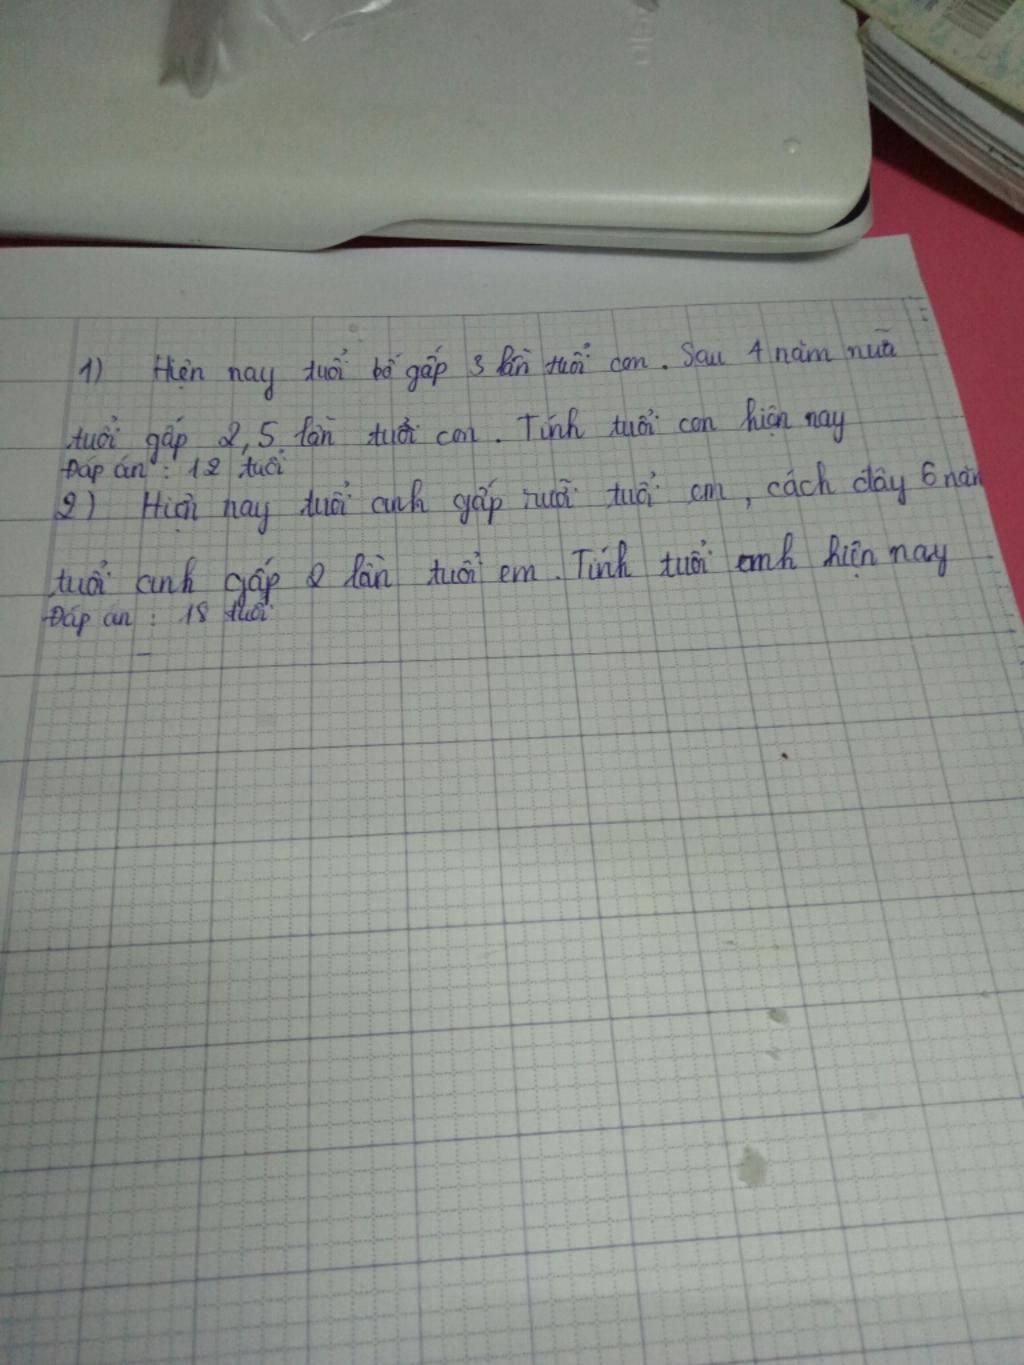 1) Hiện nay tuổi bố gấp 3 lần tuổi con. Sau 4 năm nữa
tuổi gấp 2,5 lần tuổi con. Tính tuổi con hiện nay
Đáp án : 12 tuổi
2) Hiện nay tuổi anh gấp rưỡi tuổi em, cách đây 6 năm
tuổi anh gấp 2 lần tuổi em. Tính tuổi anh hiện nay
Đáp án : 18 tuổi